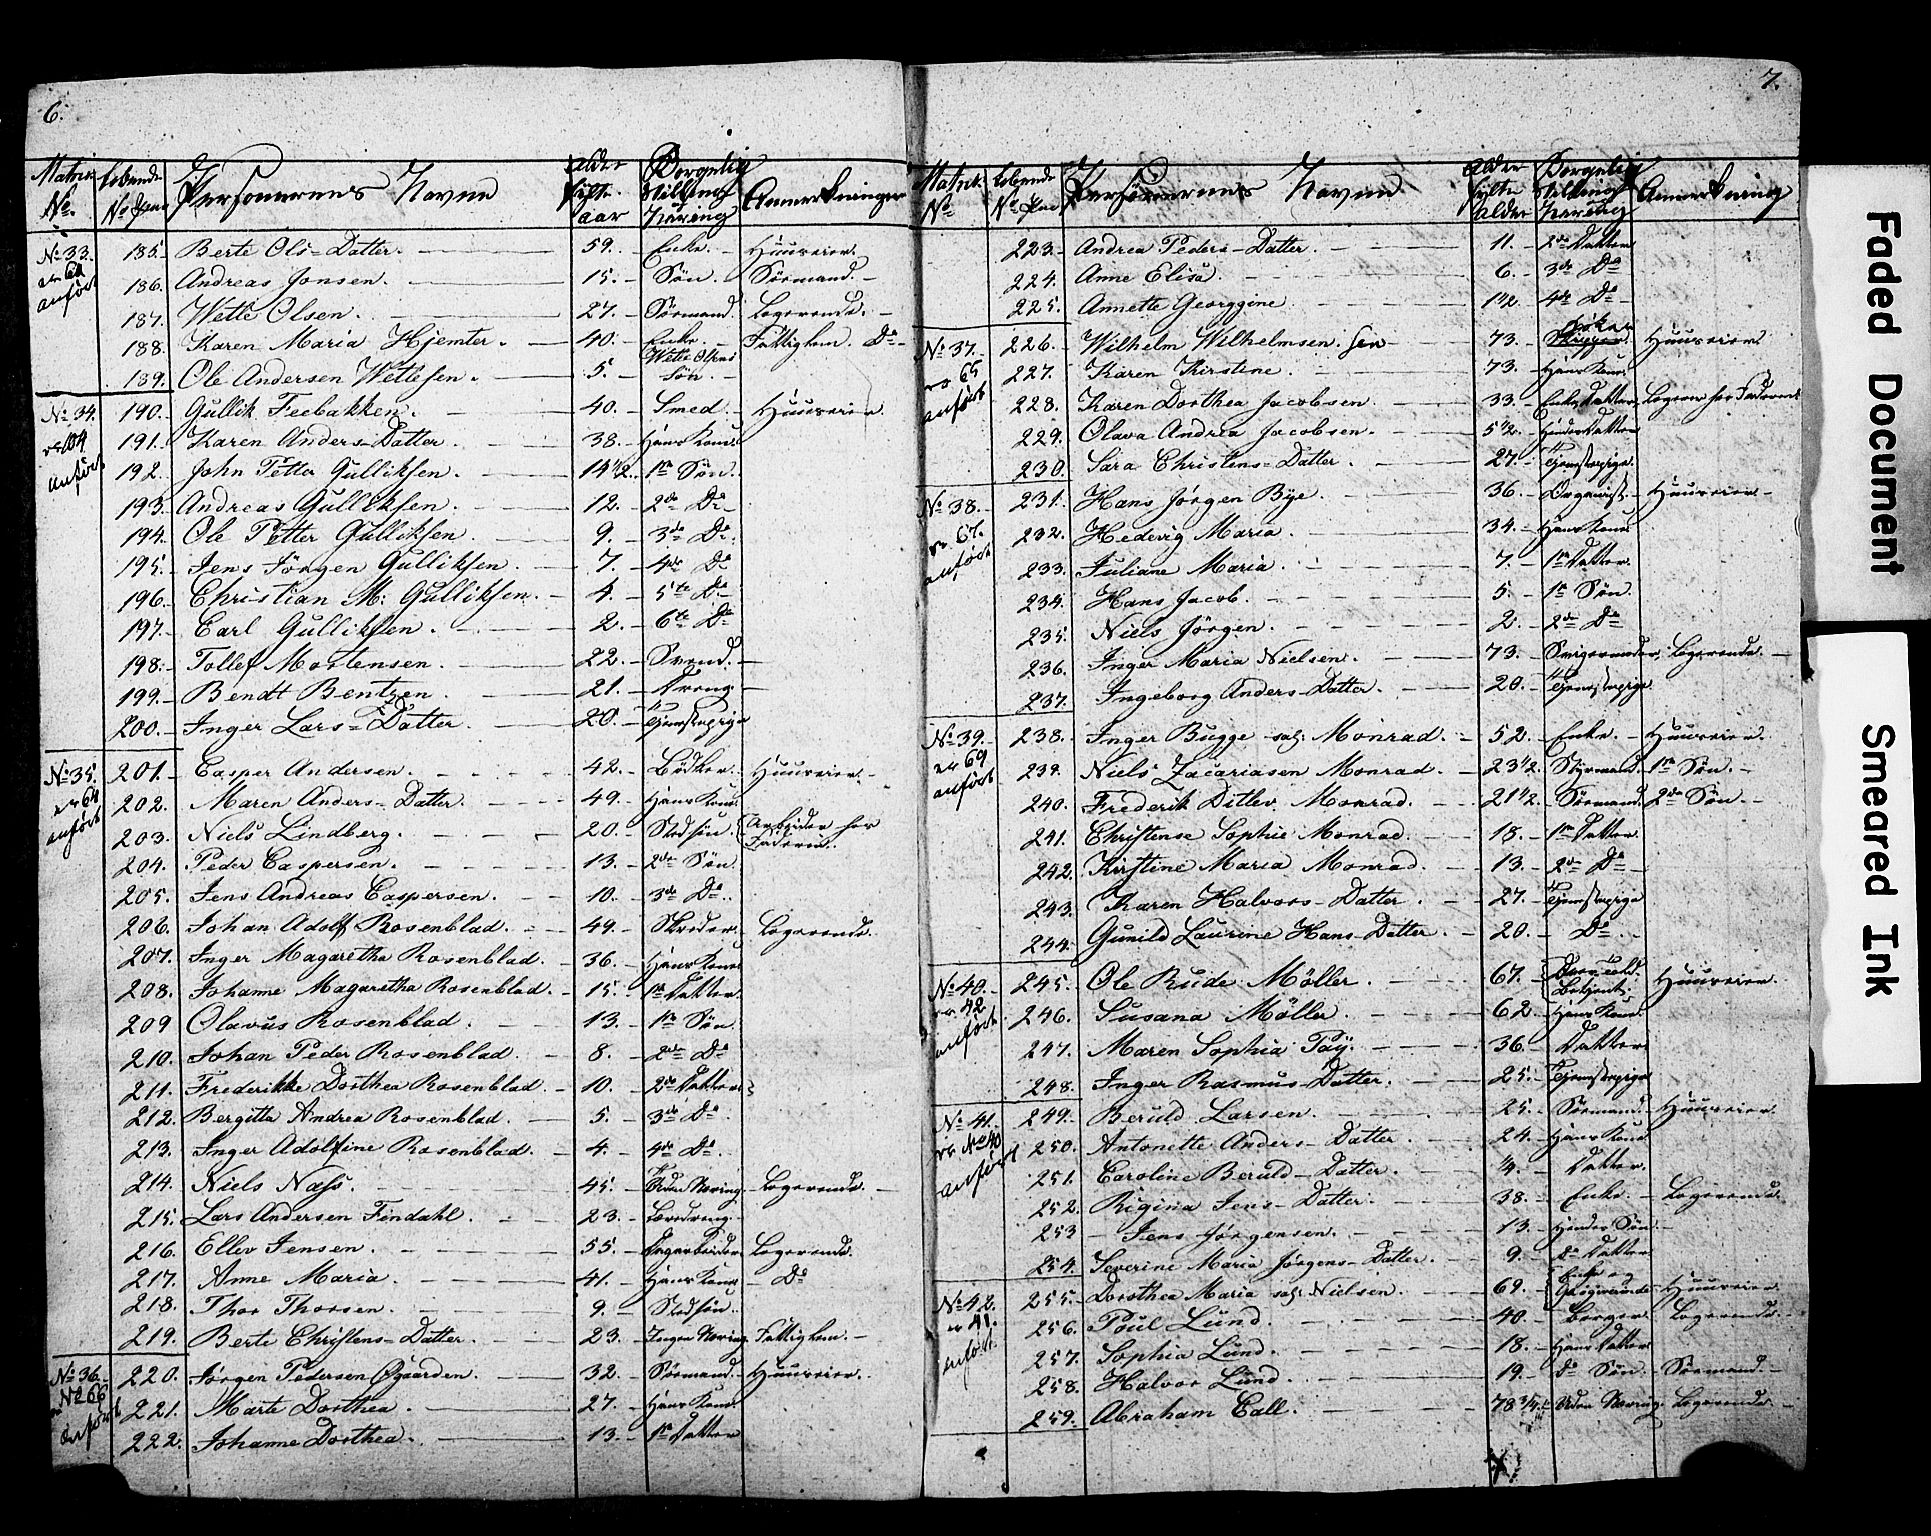 6.
Matric No. Løbende No. Personernes Navne Alder fylte aar Borgerlig Stilling Næring Anmærkninger
No 33. 185. Berte Ols-Datter. 59. Enke. Huuseier.
er 62 anført 186. Andreas Jonsen. 15. Søn. Sørmand.
187. Wette Olsen. 27. Sørmand. Logerende.
188. Karen Maria Hjemter. 40. Enke. Fattiglem. Do
189. Ole Andersen Wettesen. 5. Wette Olsens søn.
No 34. 190. Gullik Feebakken. 40. Smed. Huuseier.
anført 191. Karen Anders-Datter. 38. Hans Kone.
192. John Petter Gulliksen. 14 1/2. 1te Søn.
193. Andreas Gulliksen. 12. 2de Do
194. Ole Petter Gulliksen. 9. 3de Do
195. Jens Jörgen Gulliksen. 7. 4de Do
196. Christian M: Gulliksen. 4. 5te Do
197. Carl Gulliksen. 2. 6te Do
198. Tollef Mortensen. 22. Svend.
199. Bendt Bentzen. 21. Dreng.
200. Inger Lars-Datter. 20. Tjenstepige
No 35. 201. Casper Andersen. 42. Bödker. Huuseier.
er 64 anført 202. Maren Anders-Datter. 49. Hans Kone.
203. Niels Lindberg. 20. Stedsøn. Arbeider hos Faderen.
204. Peder Caspersen. 13. 2de Søn.
205. Jens Andreas Caspersen. 10. 3de Do
206. Johan Adolf Rosenblad. 49. Skreder. Logerende.
207. Inger Magaretha Rosenblad. 36. Hans Kone.
208. Johanne Magaretha Rosenblad. 15. 1te Datter.
209 Olavus Rosenblad. 13. 1te Søn.
210. Johan Peder Rosenblad. 8. 2de Do
211. Frederikke Dorthea Rosenblad. 10. 2de Datter
212. Bergitta Andrea Rosenblad. 5. 3de Do
213. Inger Adolfine Rosenblad. 4. 4de Do.
214. Niels Nass. 45. Uden Næring. Logerende.
215. Lars Andersen Findahl. 23. Læredreng.
216. Ellev Jensen. 55. Logerende.
217. Anne Maria. 41. Hans Kone Do
218. Thor Thorsen. 9. Stedsøn.
219. Berte Christens-Datter. 23. Ingen Næring. Fattiglem.
No 36. 220. Jörgen Pedersen Øgaarden. 32. Sørmand. Huuseier.
No 66 anført 221. Marte Dorthea. 27. Hans Kone.
222. Johanne Dorthea. 13. 1te Datter
7.
Matrick No Løbende No Personernes Navne Alder fylte alder Borgerlig Stilling Næring Anmærkning
223. Andrea Peders-Datter. 11. 2de Datter
224. Anne Elisa. 6. 3de Do
225. Annette Georggine. 1 1/2. 4de Do
No 37. 226. Wilhelm Wilhelmsen. sen 73. Skipper. Huuseier.
er 65 anført 227. Karen Kirstine. 73. Hans Kone.
228. Karen Dorthea Jacobsen. 33. Enke, Datter. Logerer hos Faderen
229. Olava Andrea Jacobsen. 5 1/2. Hendes Datter
230. Sara Christens-Datter. 27. Tjenstepige.
No 38. 231. Hans Jörgen Bye. 36. Organist. Huuseier.
er 67. anført 232. Hedevig Maria. 34. Hans Kone.
233. Juliane Maria. 7. 1te Datter.
234. Hans Jacob. 5. 1te Søn.
235. Niels Jörgen. 2. 2de Do
236. Inger Maria Nielsen. 73. Svigermoder. Logerende.
237. Ingeborg Anders-Datter. 20. Tjenstepige.
No 39. 238. Inger Bugge sal: Monrad. 52. Enke. Huuseier.
er 69 anført 239. Niels Zacariasen Monrad. 23 1/2. Styrmand. 1te Søn.
240. Frederik Ditlev Monrad. 21 1/2. Sørmand. 2de Søn.
241. Christense Sophie Monrad. 18. 1te Datter.
242. Kirstine Maria Monrad. 13. 2de Do
243. Karen Halvors-Datter. 27. Tjenstepige
244. Gunild Laurine Hans-Datter. 20. Do.
No 40. 245. Ole Rude Möller. 67. Huuseier.
er 42 anført 246. Susana Möller. 62. Hans Kone.
247. Maren Sophia Paÿ. 36. Datter.
248. Inger Rasmus-Datter. 25. Tjenstepige
No 41. 249. Beruld Larsen. 25. Sørmand. Huuseier.
er No 40 anført 250. Antonette Anders-Datter. 24. Hans Kone
251. Caroline Beruld-Datter. 1/4. Datter.
252. Rigina Jens-Datter. 38. Enke. Logerende.
253 Jens Jörgensen. 13. Hendes Søn.
254. Severine Maria Jörgens-Datter. 9. Do Datter
No 42. 255. Dorothea Maria sal: Nielsen. 69. Enke og Huuseier.
er 41. anført. 256. Poul Lund. 40. Borger. Logerende.
257. Sophia Lund. 18. Hans Datter
258. Halvor Lund. 19. Do Søn. Sørmand.
259. Abraham Call. 78 3/4. Uden Næring. Logerende.
Faded Document
Smeared Ink